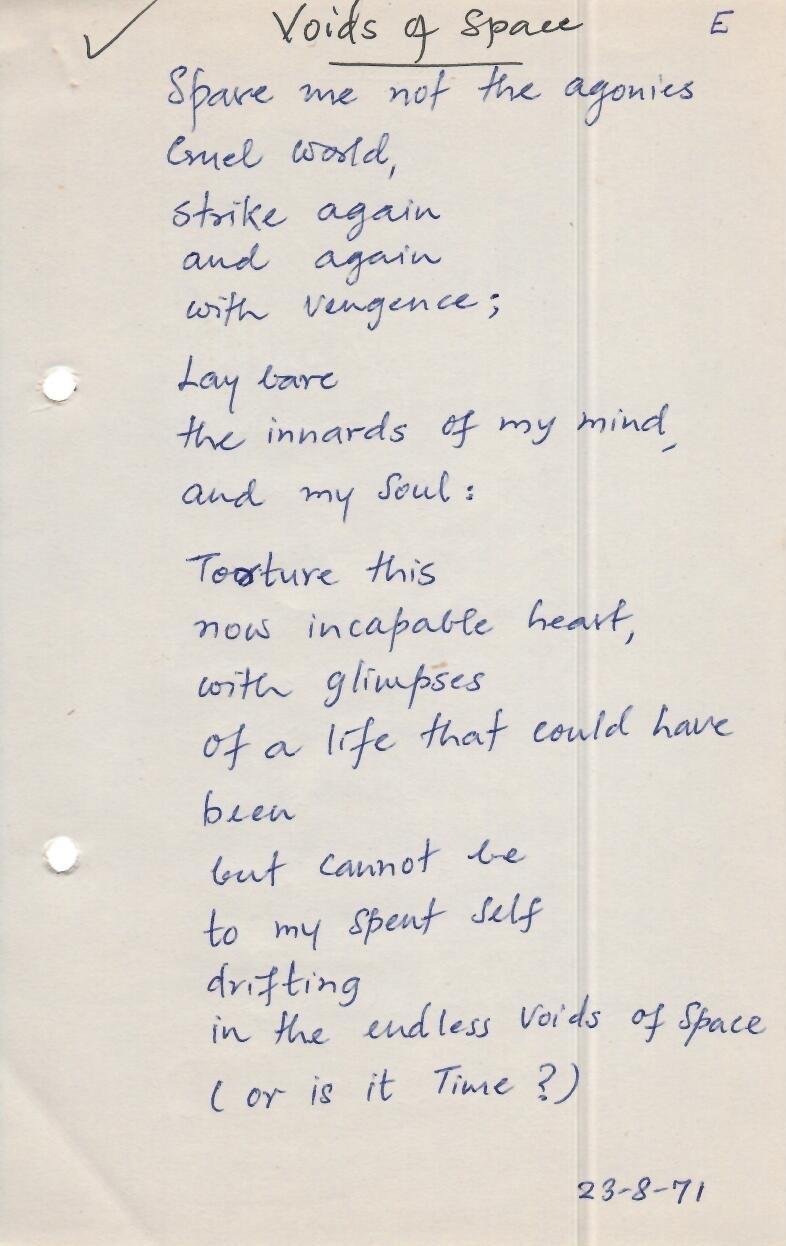 Voids of Space
E
Spare me not the agonies
Cruel world,
strike again
and again
with vengence;
Lay bare
the innards of my mind,
and my soul:
Torture this
now incapable heart,
with glimpses
of a life that could have
been
but cannot be
to my spent self
drifting
in the endless voids of space
(or is it Time?)
23-8-71